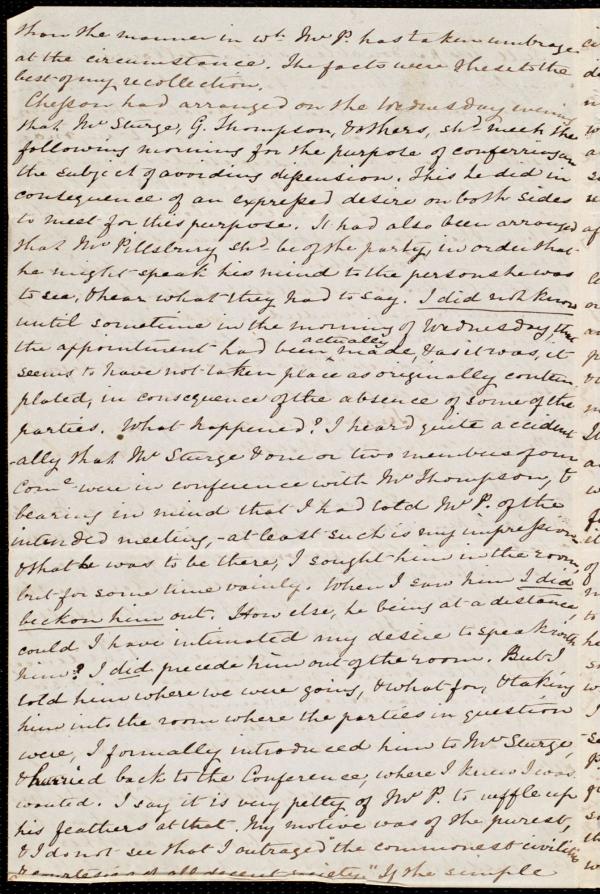 than the manner in wh. Mr P. has taken umbrage
at the circumstance. The facts were these to the
best of my recollection.
Chesson had arranged on the Wednesday evening
that Mr Sturge, G. Thompson, & others, shd. meet the
following morning for the purpose of conferring on
the subject of avoiding dissension. This he did in
consequence of an expressed desire on both sides
to meet for this purpose. It had also been arranged
that Mr Pillsbury shd. be of the party, in order that
he might speak his mind to the persons he was
to see, & hear what they had to say. I did not know
until sometime in the morning of Wednesday, that
the appointment had been actually made, & as it was, it
seems to have not taken place as originally contem
plated, in consequence of the absence of some of the
parties. What happened? I heard quite accident
-ally that Mr Sturge & one or two members of our
Come. were in conference with Mr Thompson, &
bearing in mind that I had told Mr P. of the
intended meeting, - at least such is my impression,
& that he was to be there, I sought him in the room,
but for some time vainly. When I saw him I did
beckon him out. How else, he being at a distance,
could I have intimated my desire to speak with
him? I did precede him out of the room. But I
told him where we were going, & what for, & taking
him into the room where the parties in question
were, I formally introduced him to Mr Sturge,
& hurried back to the Conference, where I knew I was
wanted. I say it is very petty of Mr P. to ruffle up
his feathers at that. My motive was of the purest,
& I do not see that I outraged "the commonest civilities
& courtesies of all decent society." If the simple